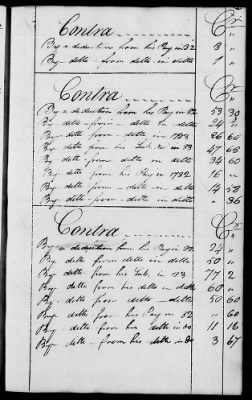 Contra Cr
By a deduction from his Pay in 82 8 "
By - ditto - from - ditto in ditto 1 "
Contra Cr
By a deduction from his Pay in 82 53 30
By ditto - from - ditto in ditto 24
By ditto from - ditto in 1783 26 60
By ditto from his Sub. in 83 47 68
By ditto from ditto in ditto 34 60
By ditto from his Pay in 1782 16 "
By ditto - from ditto - in ditto 14 58
By - ditto - from - ditto in ditto " 36
Contra Cr
By a deduction from his Pay in 24 "
By ditto from ditto in ditto 50 "
By ditto from his Sub. in 83 77 2
By - ditto from his ditto in ditto 60 "
By - ditto from ditto - ditto 50 60
By - ditto from his Pay in 82 " 60
By - ditto from his ditto in 11 16
By - ditto - from his ditto in 3 67